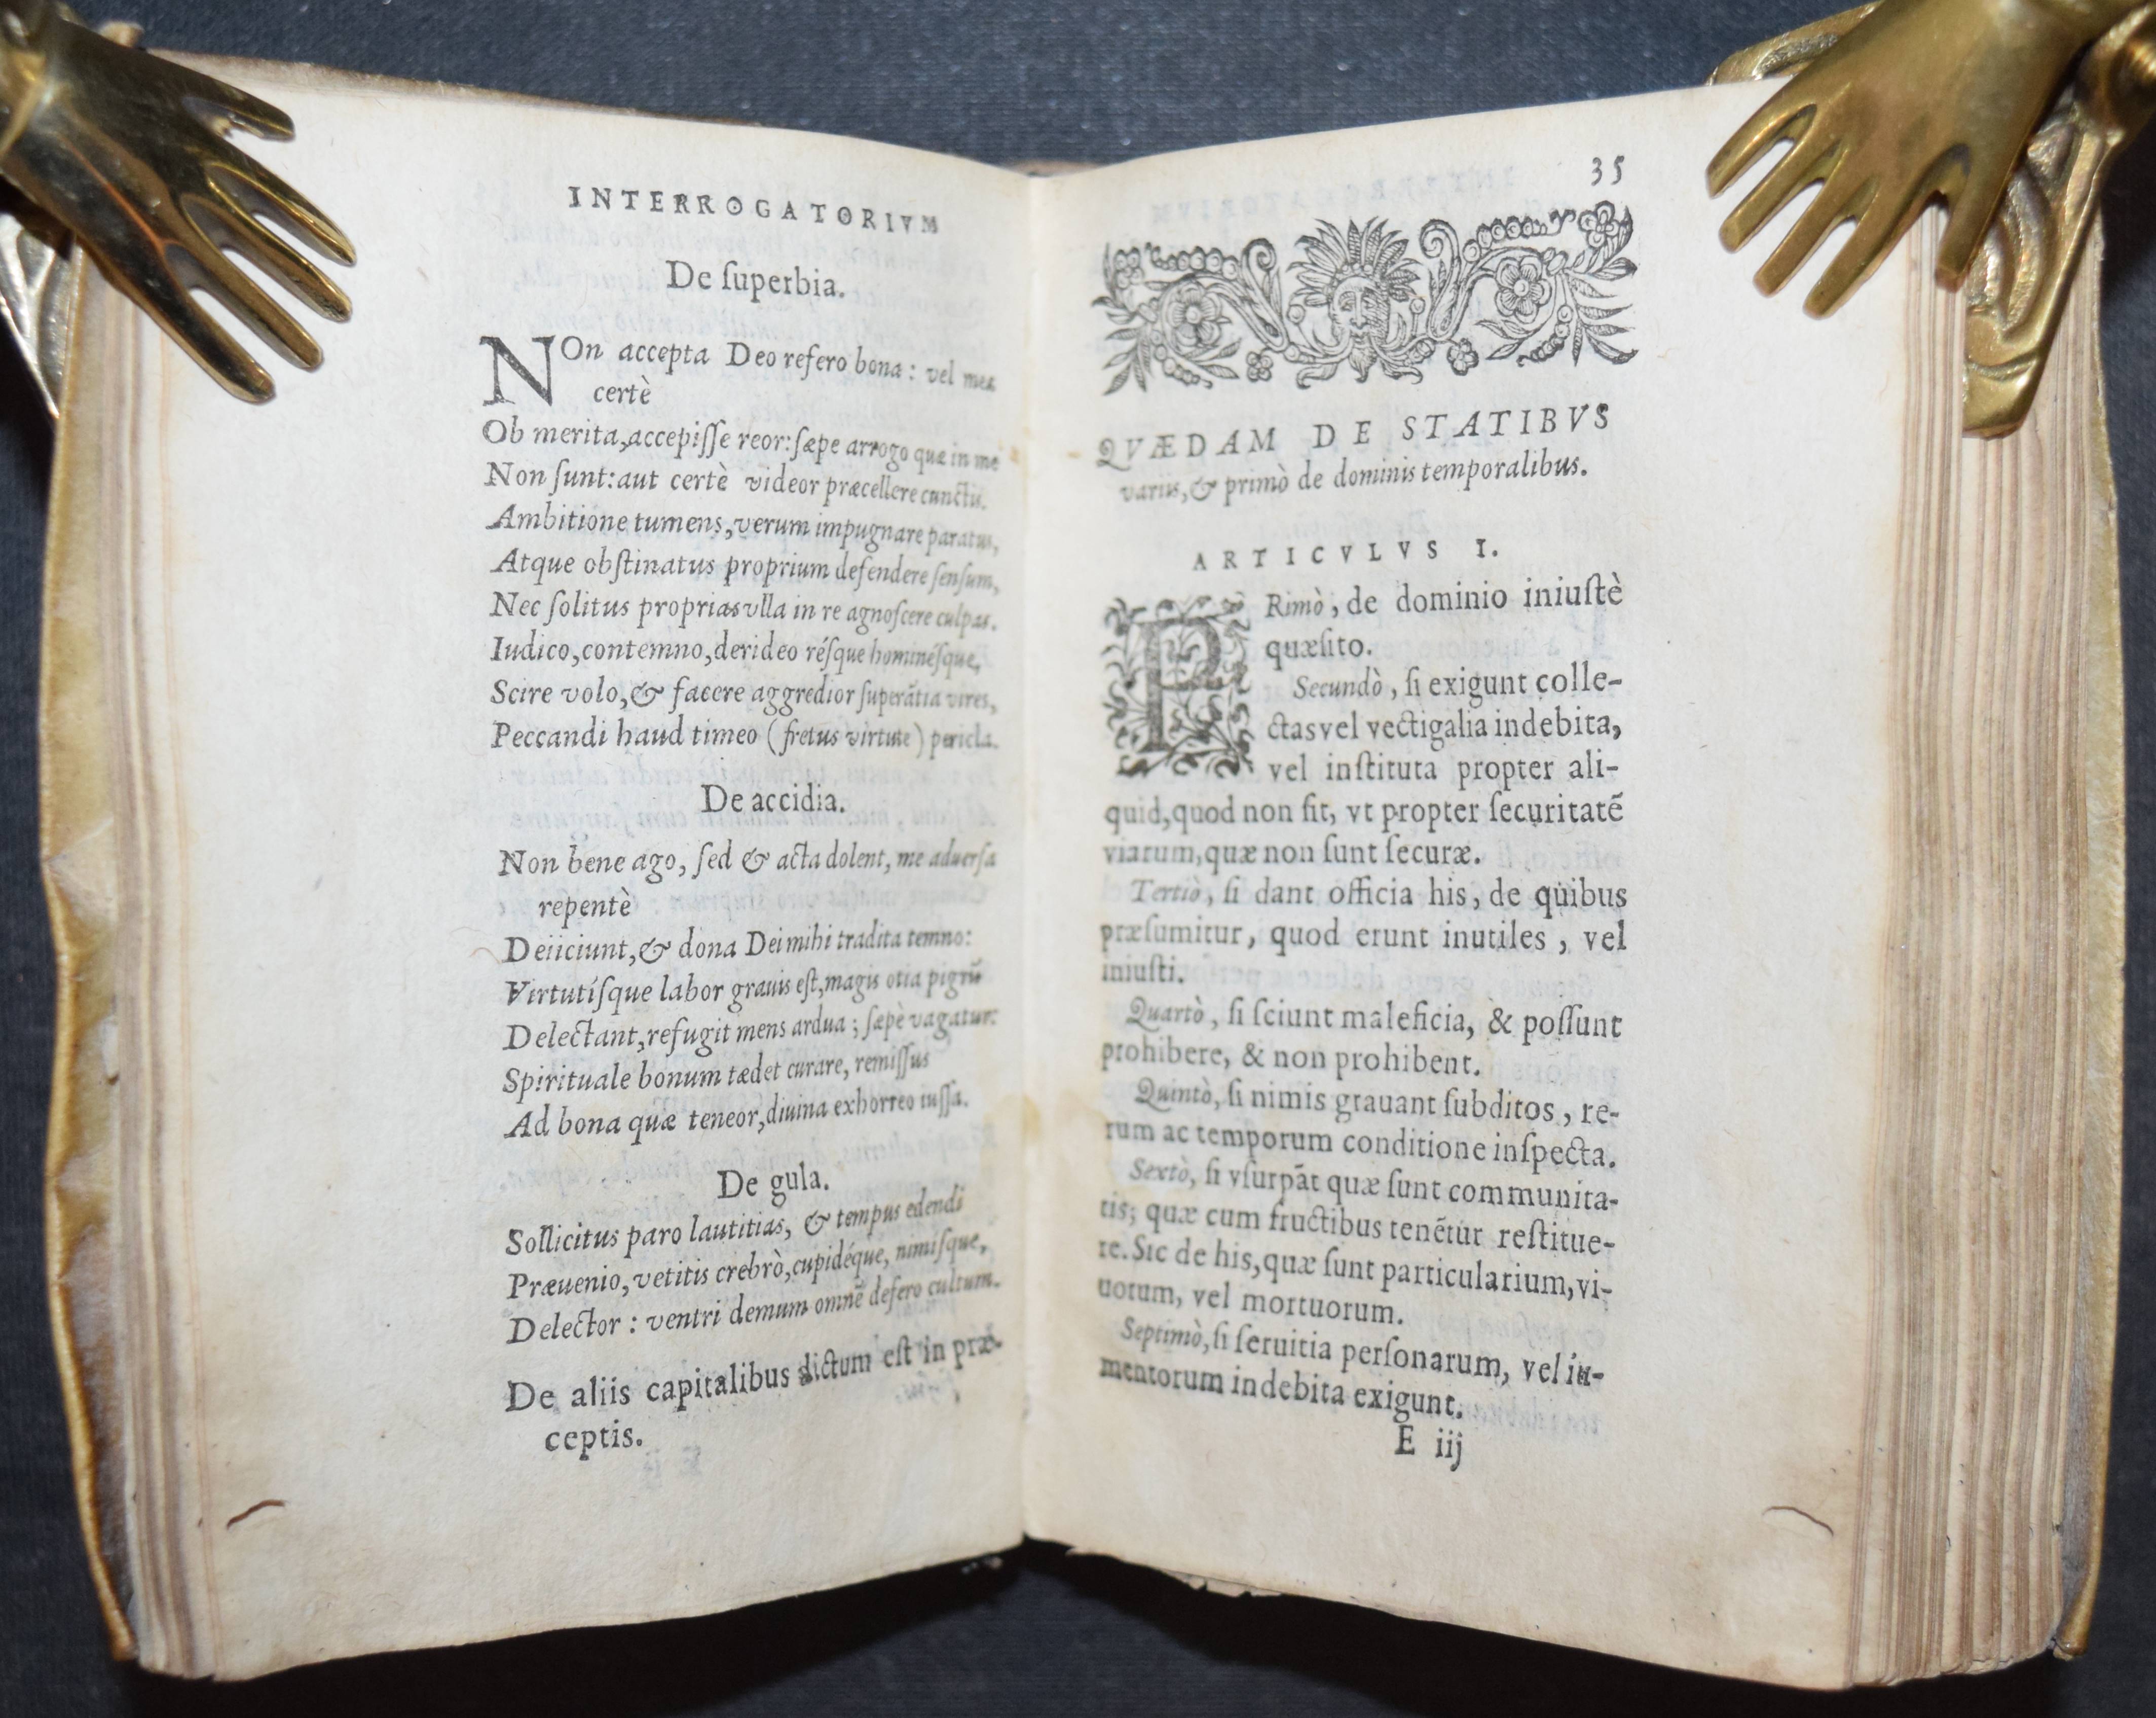 INTERROGATORIVM
De ſuperbia.
NOn accepta Deo refero bona: vel mea
certè
Ob merita,accepiſſe reor:ſæpe arrogo quæ in me
Non ſunt:aut certè videor præcellere cunctis.
Ambitione tumens,verum impugnare paratus,
Atque obſtinatus proprium defendere ſenſum,
Nec ſolitus proprias vlla in re agnoſcere culpas.
Iudico,contemno,derideo réſque hominéſque,
Scire volo,& facere aggredior ſuperãtia vires,
Peccandi haud timeo (fretus virtute) pericla.
De accidia.
Non bene ago, ſed & acta dolent, me aduerſa
repentè
Deiiciunt,& dona Dei mihi tradita temno:
Virtutíſque labor grauis eſt,magis otia pigrũ
Delectant,refugit mens ardua; ſæpè vagatur:
Spirituale bonum tædet curare, remiſſus
Ad bona quæ teneor,diuina exhorreo iuſſa.
De gula.
Sollicitus paro lautitias, & tempus edendi
Præuenio,vetitis crebrò,cupidéque, nimiſque,
Delector: ventri demum omnẽ defero cultum.
De aliis capitalibus dictum eſt in præ-
ceptis.
35
QVÆDAM DE STATIBVS
variis,& primò de dominis temporalibus.
ARTICVLVS I.
PRimò, de dominio iniuſtè
quæſito.
Secundò, ſi exigunt colle-
ctas vel vectigalia indebita,
vel inſtituta propter ali-
quid,quod non fit, vt propter ſecuritatẽ
viarum,quæ non ſunt ſecuræ.
Tertiò, ſi dant officia his, de quibus
præſumitur, quod erunt inutiles, vel
iniuſti.
Quartò, ſi ſciunt maleficia, & poſſunt
prohibere, & non prohibent.
Quintò, ſi nimis grauant ſubditos, re-
rum ac temporum conditione inſpecta.
Sextò, ſi vſurpãt quæ ſunt communita-
tis; quæ cum fructibus tenẽtur reſtitue-
re. Sic de his,quæ ſunt particularium,vi-
uorum, vel mortuorum.
Septimò,ſi ſeruitia perſonarum, vel iu-
mentorum indebita exigunt.
E iij